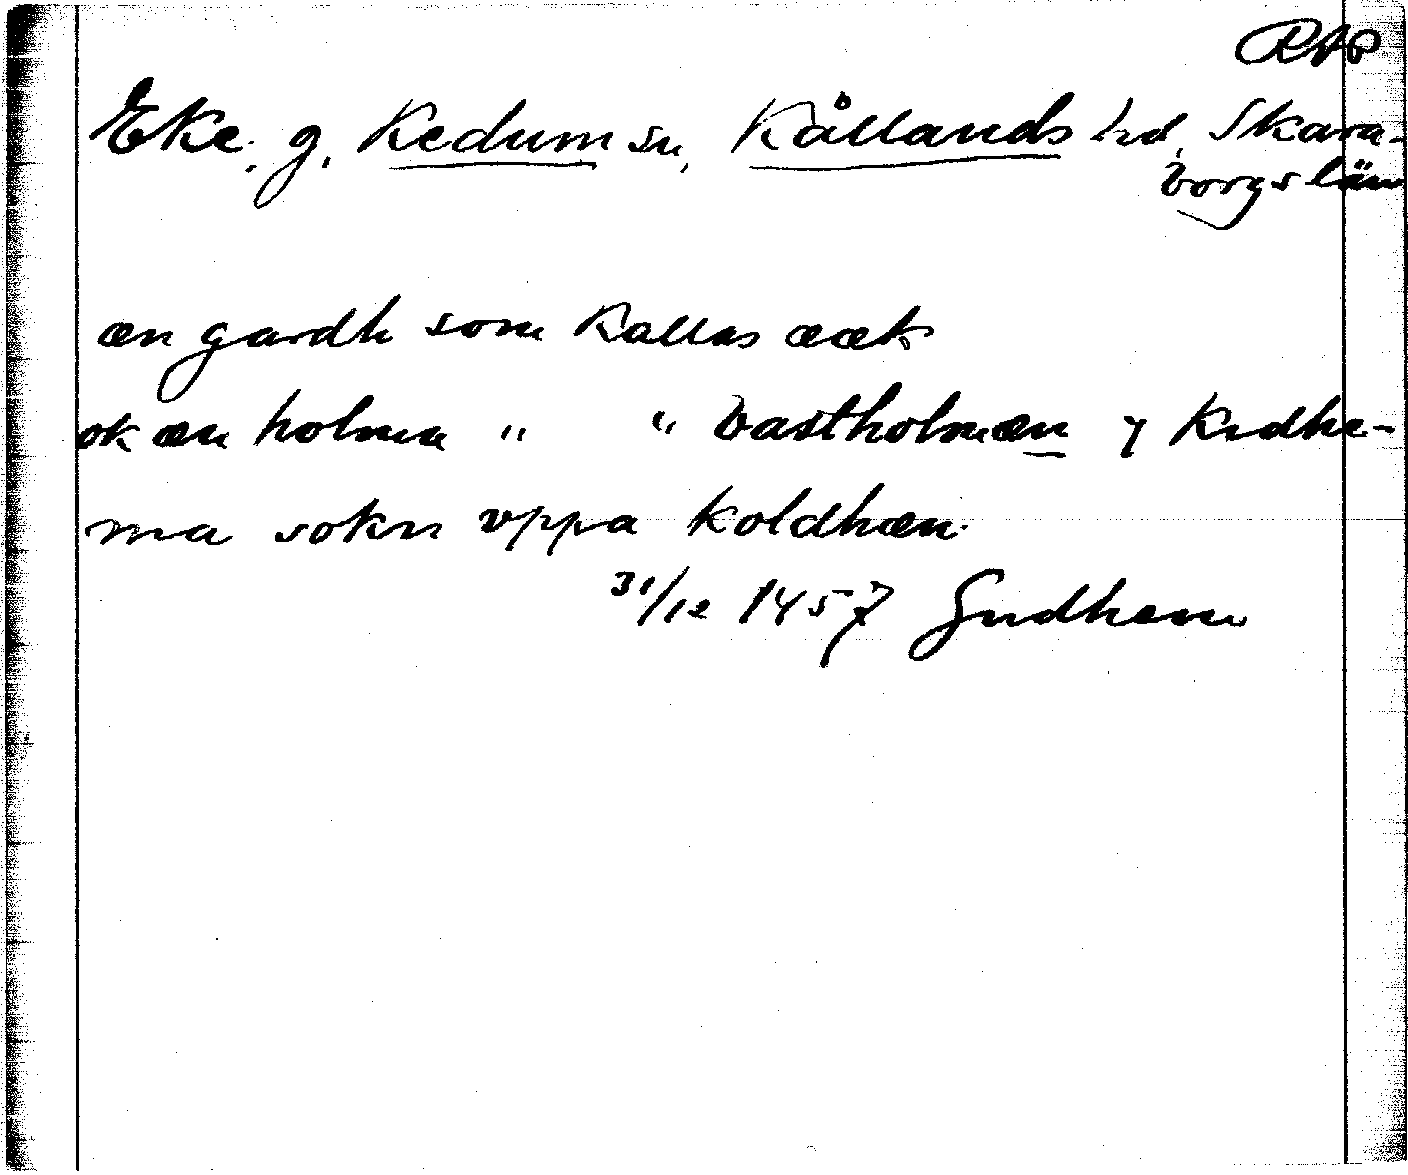 RAP
Eke, g. Kedum sn, Kållands hd, Skara-
borgs län
æn gardh som kallas ææk
ok æn holma " " Vastholmæn y Kidhe-
ma sokn vppa Koldhæn
31/12 1457 Gudhem